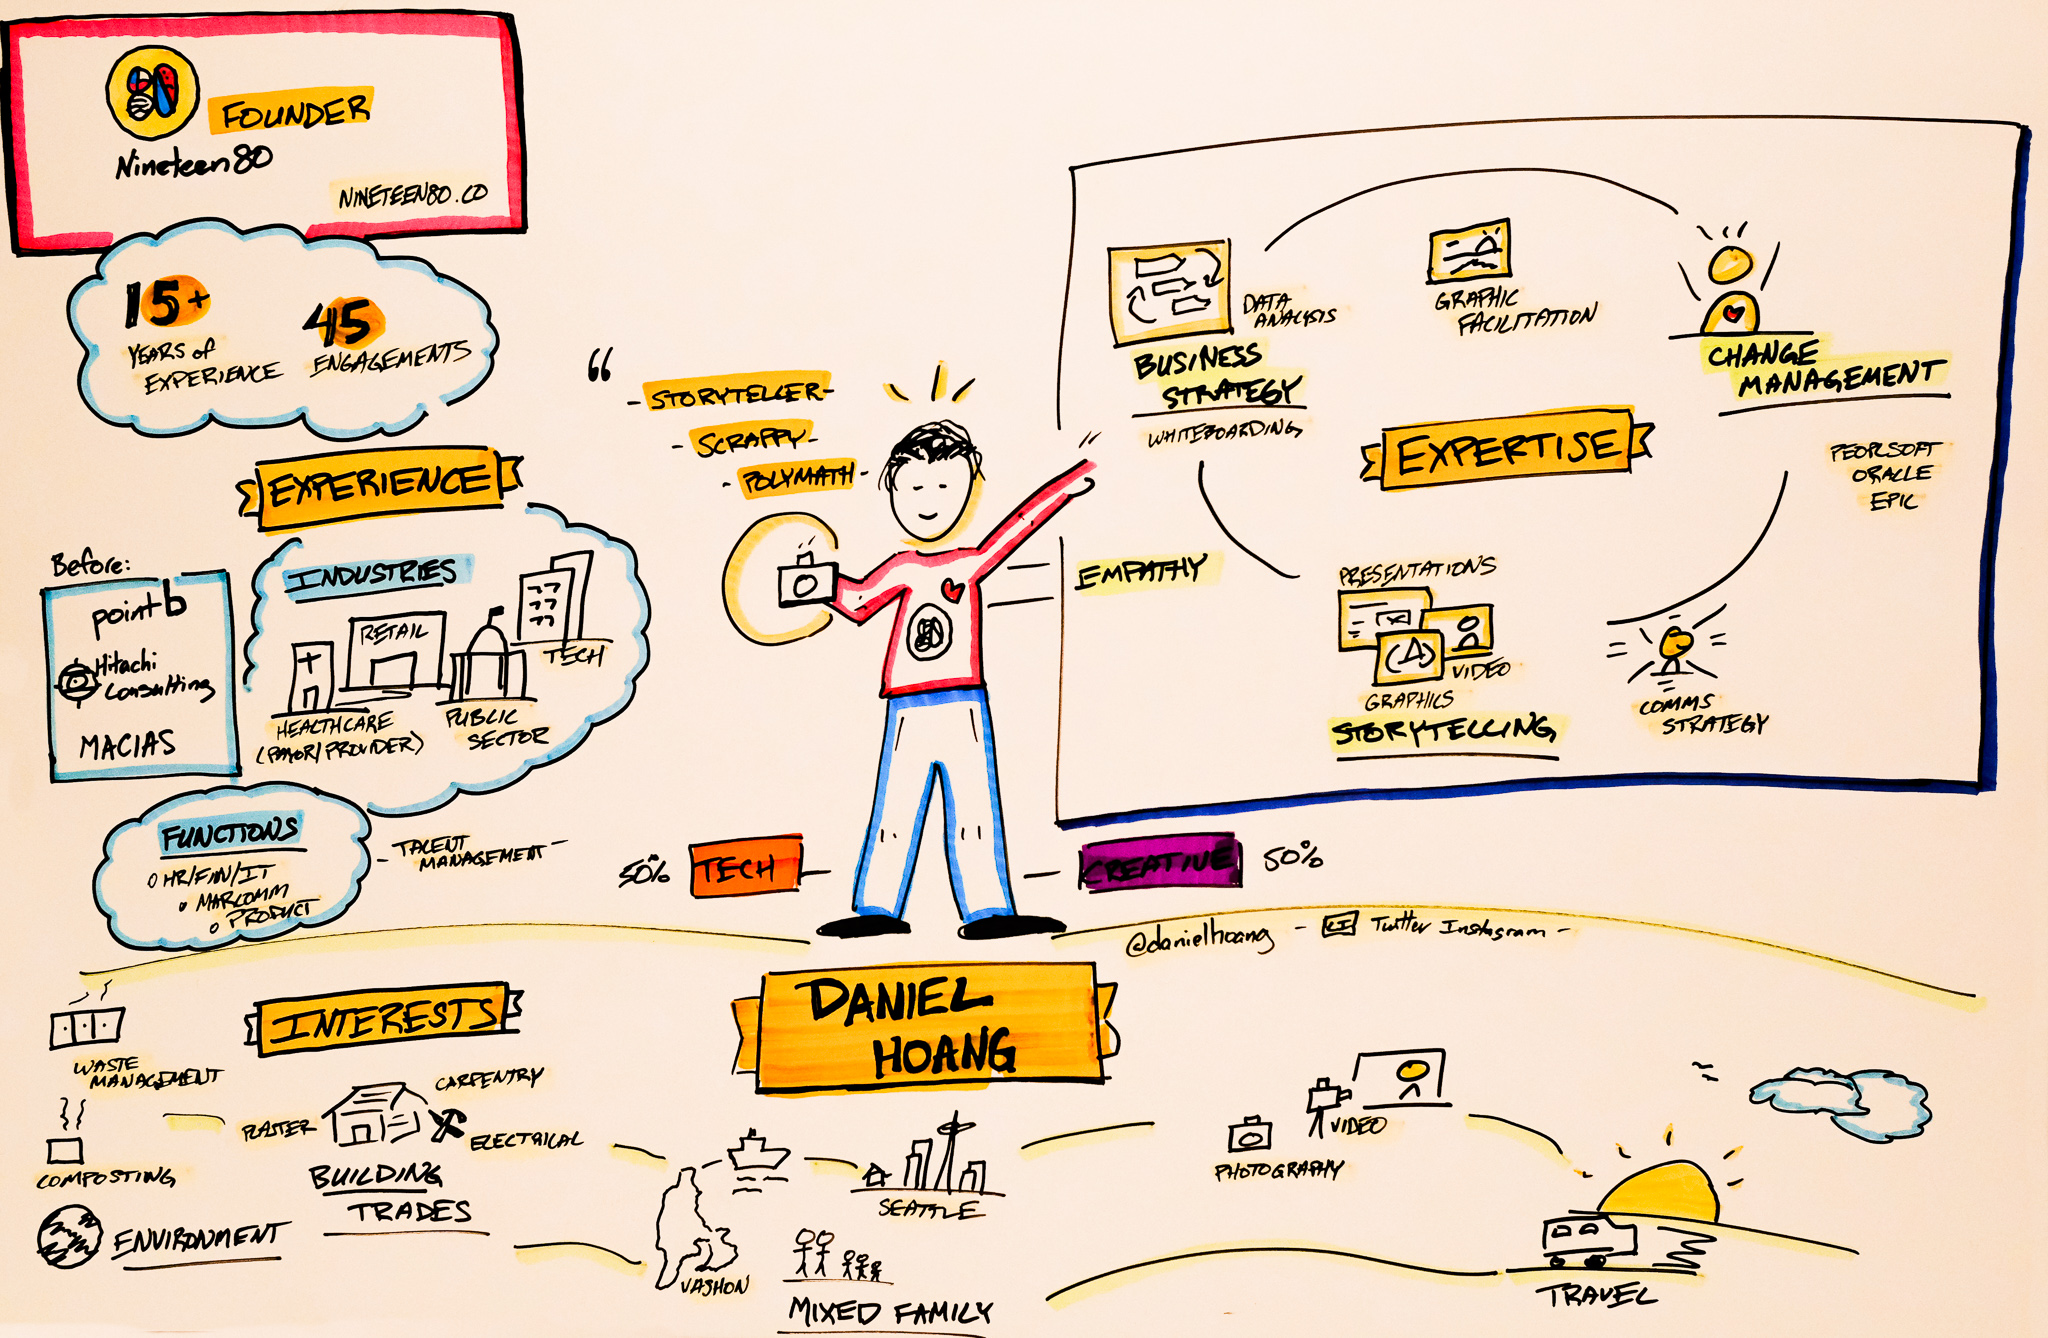 FOUNDER
Nineteen80
NINETEEN80.CO
15+
YEARS of
EXPERIENCE
45
ENGAGEMENTS
EXPERIENCE
Before:
point b
Hitachi
Consulting
MACIAS
INDUSTRIES
RETAIL
TECH
HEALTHCARE
(PAYOR/PROVIDER)
PUBLIC
SECTOR
FUNCTIONS
HR/FIN/IT
MARCOMM
PRODUCT
- TALENT
MANAGEMENT -
“
- STORYTELLER -
- SCRAPPY -
- POLYMATH -
50% TECH
CREATIVE 50%
DATA
ANALYSIS
BUSINESS
STRATEGY
WHITEBOARDING
GRAPHIC
FACILITATION
CHANGE
MANAGEMENT
EXPERTISE
PEOPLSOFT
ORACLE
EPIC
EMPATHY
PRESENTATIONS
VIDEO
GRAPHICS
STORYTELLING
COMMS
STRATEGY
@danielhoang - Twitter Instagram -
DANIEL
HOANG
INTERESTS
WASTE
MANAGEMENT
COMPOSTING
ENVIRONMENT
PLASTER
CARPENTRY
ELECTRICAL
BUILDING
TRADES
VASHON
SEATTLE
MIXED FAMILY
PHOTOGRAPHY
VIDEO
TRAVEL